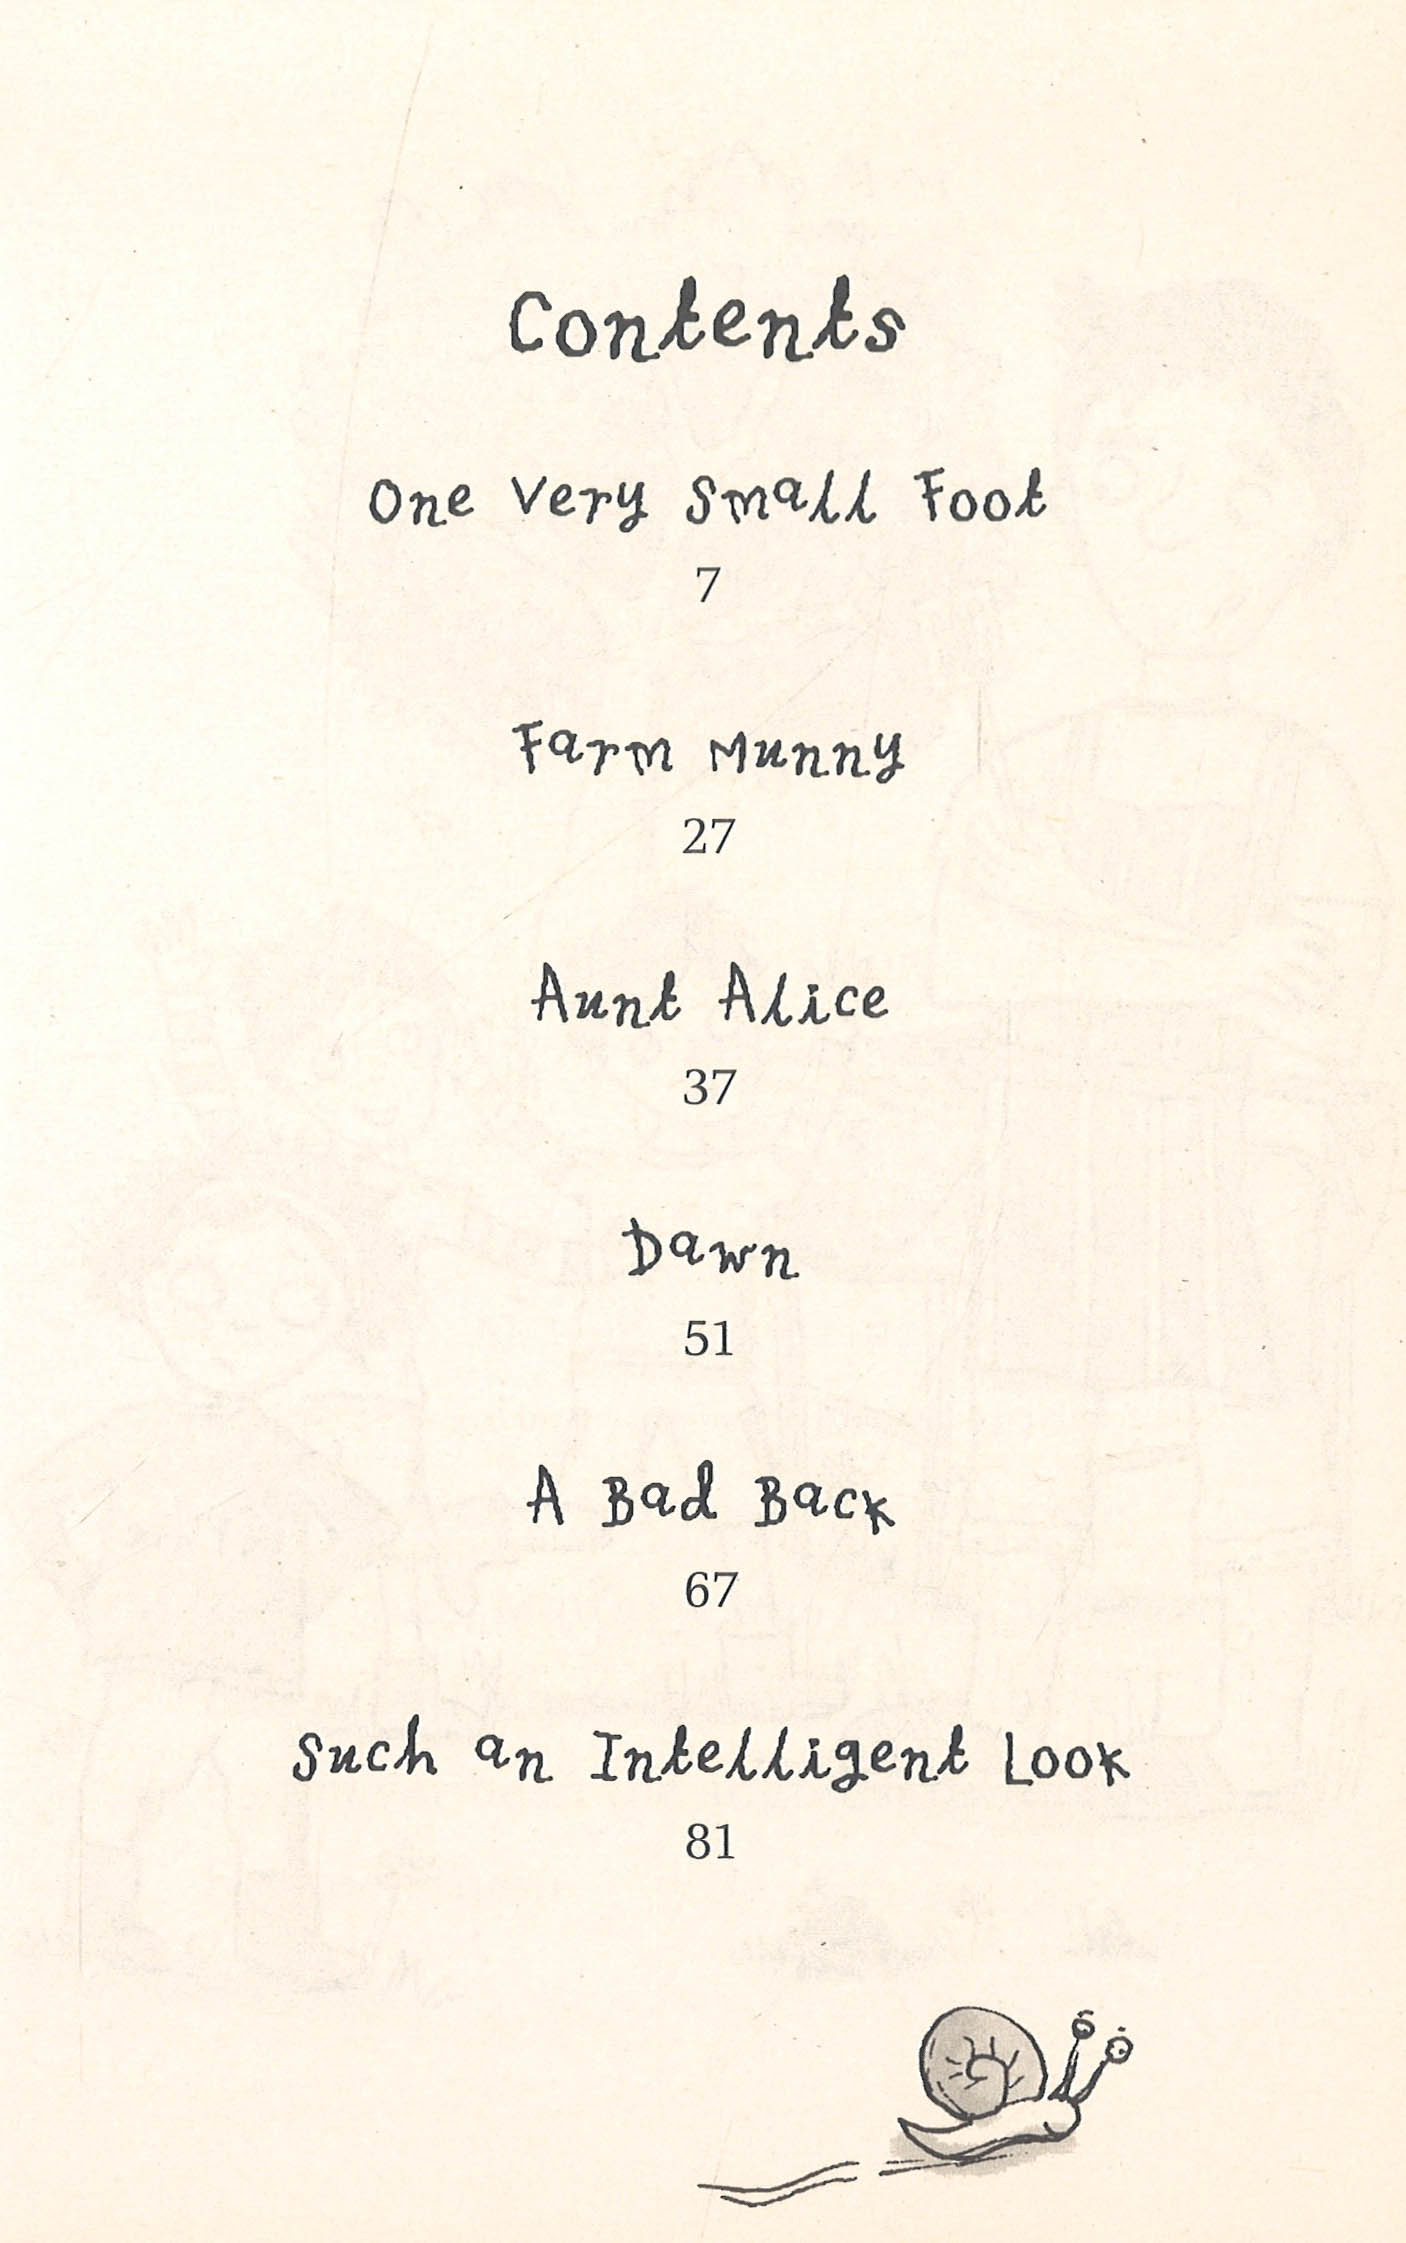 Contents
One Very Small Foot
7
Farm Munny
27
Aunt Alice
37
Dawn
51
A Bad Back
67
Such an Intelligent Look
81